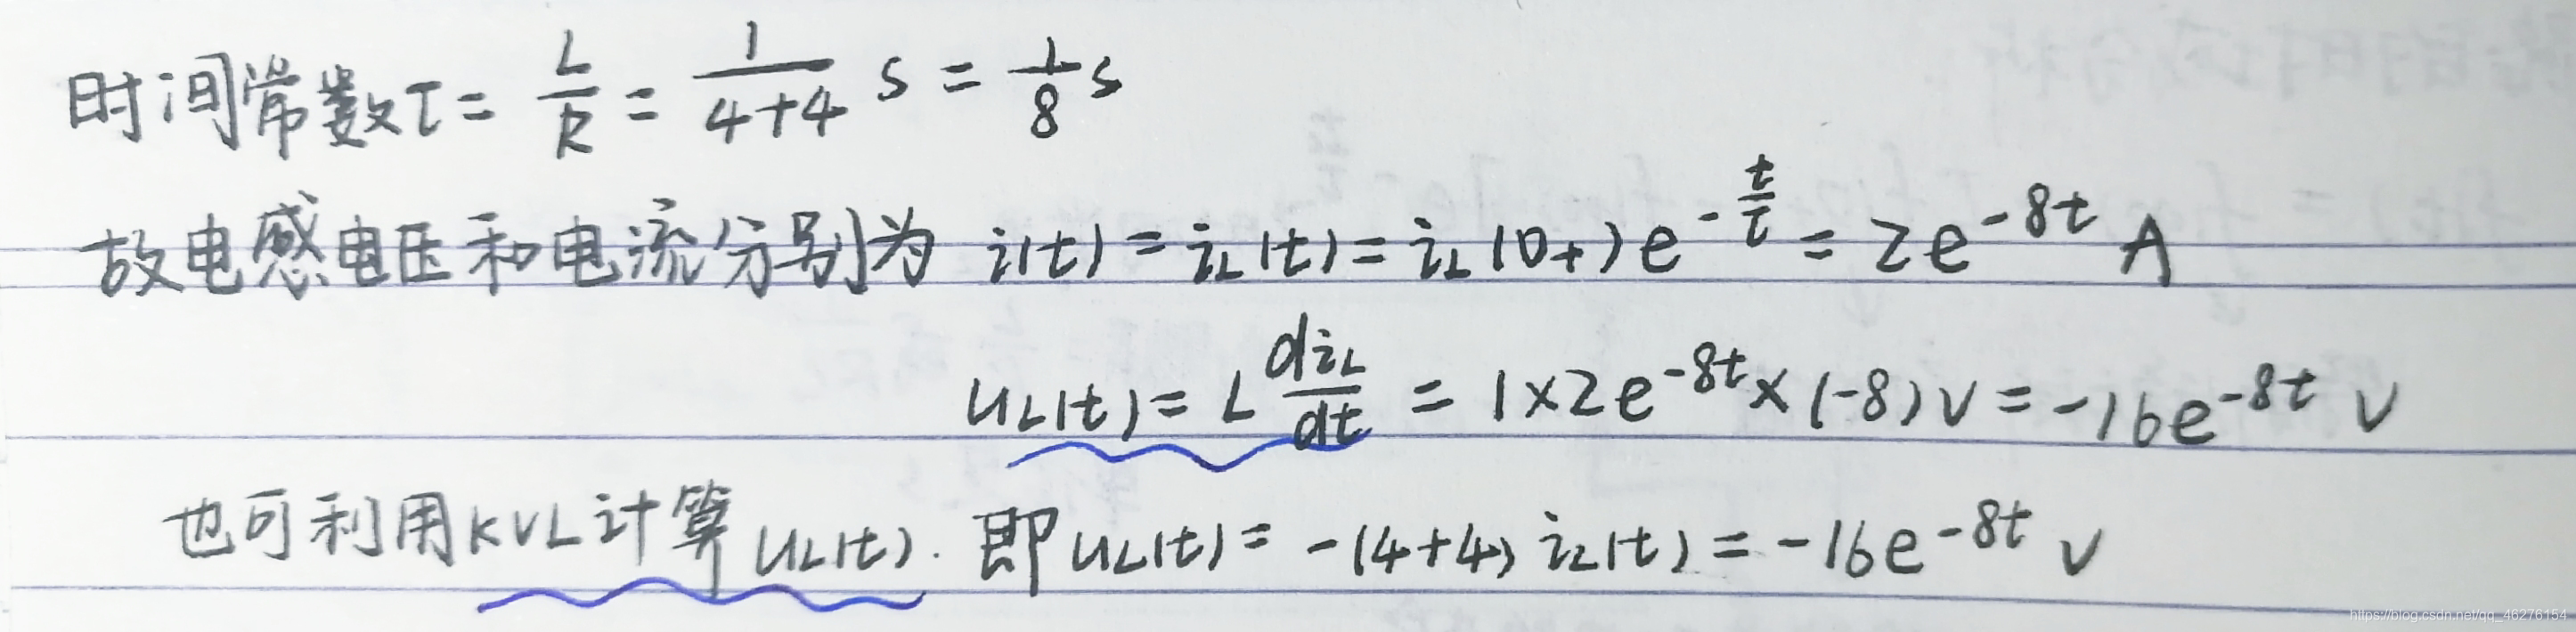 时间常数τ = L/R = 1/(4+4) s = 1/8 s
故电感电压和电流分别为 i(t) = i_L(t) = i_L(0+)e^(-t/τ) = 2e^(-8t) A
u_L(t) = L di_L/dt = 1×2e^(-8t)×(-8)V = -16e^(-8t) V
也可利用KVL计算u_L(t). 即u_L(t) = -(4+4) i_L(t) = -16e^(-8t) V
https://blog.csdn.net/qq_46276154